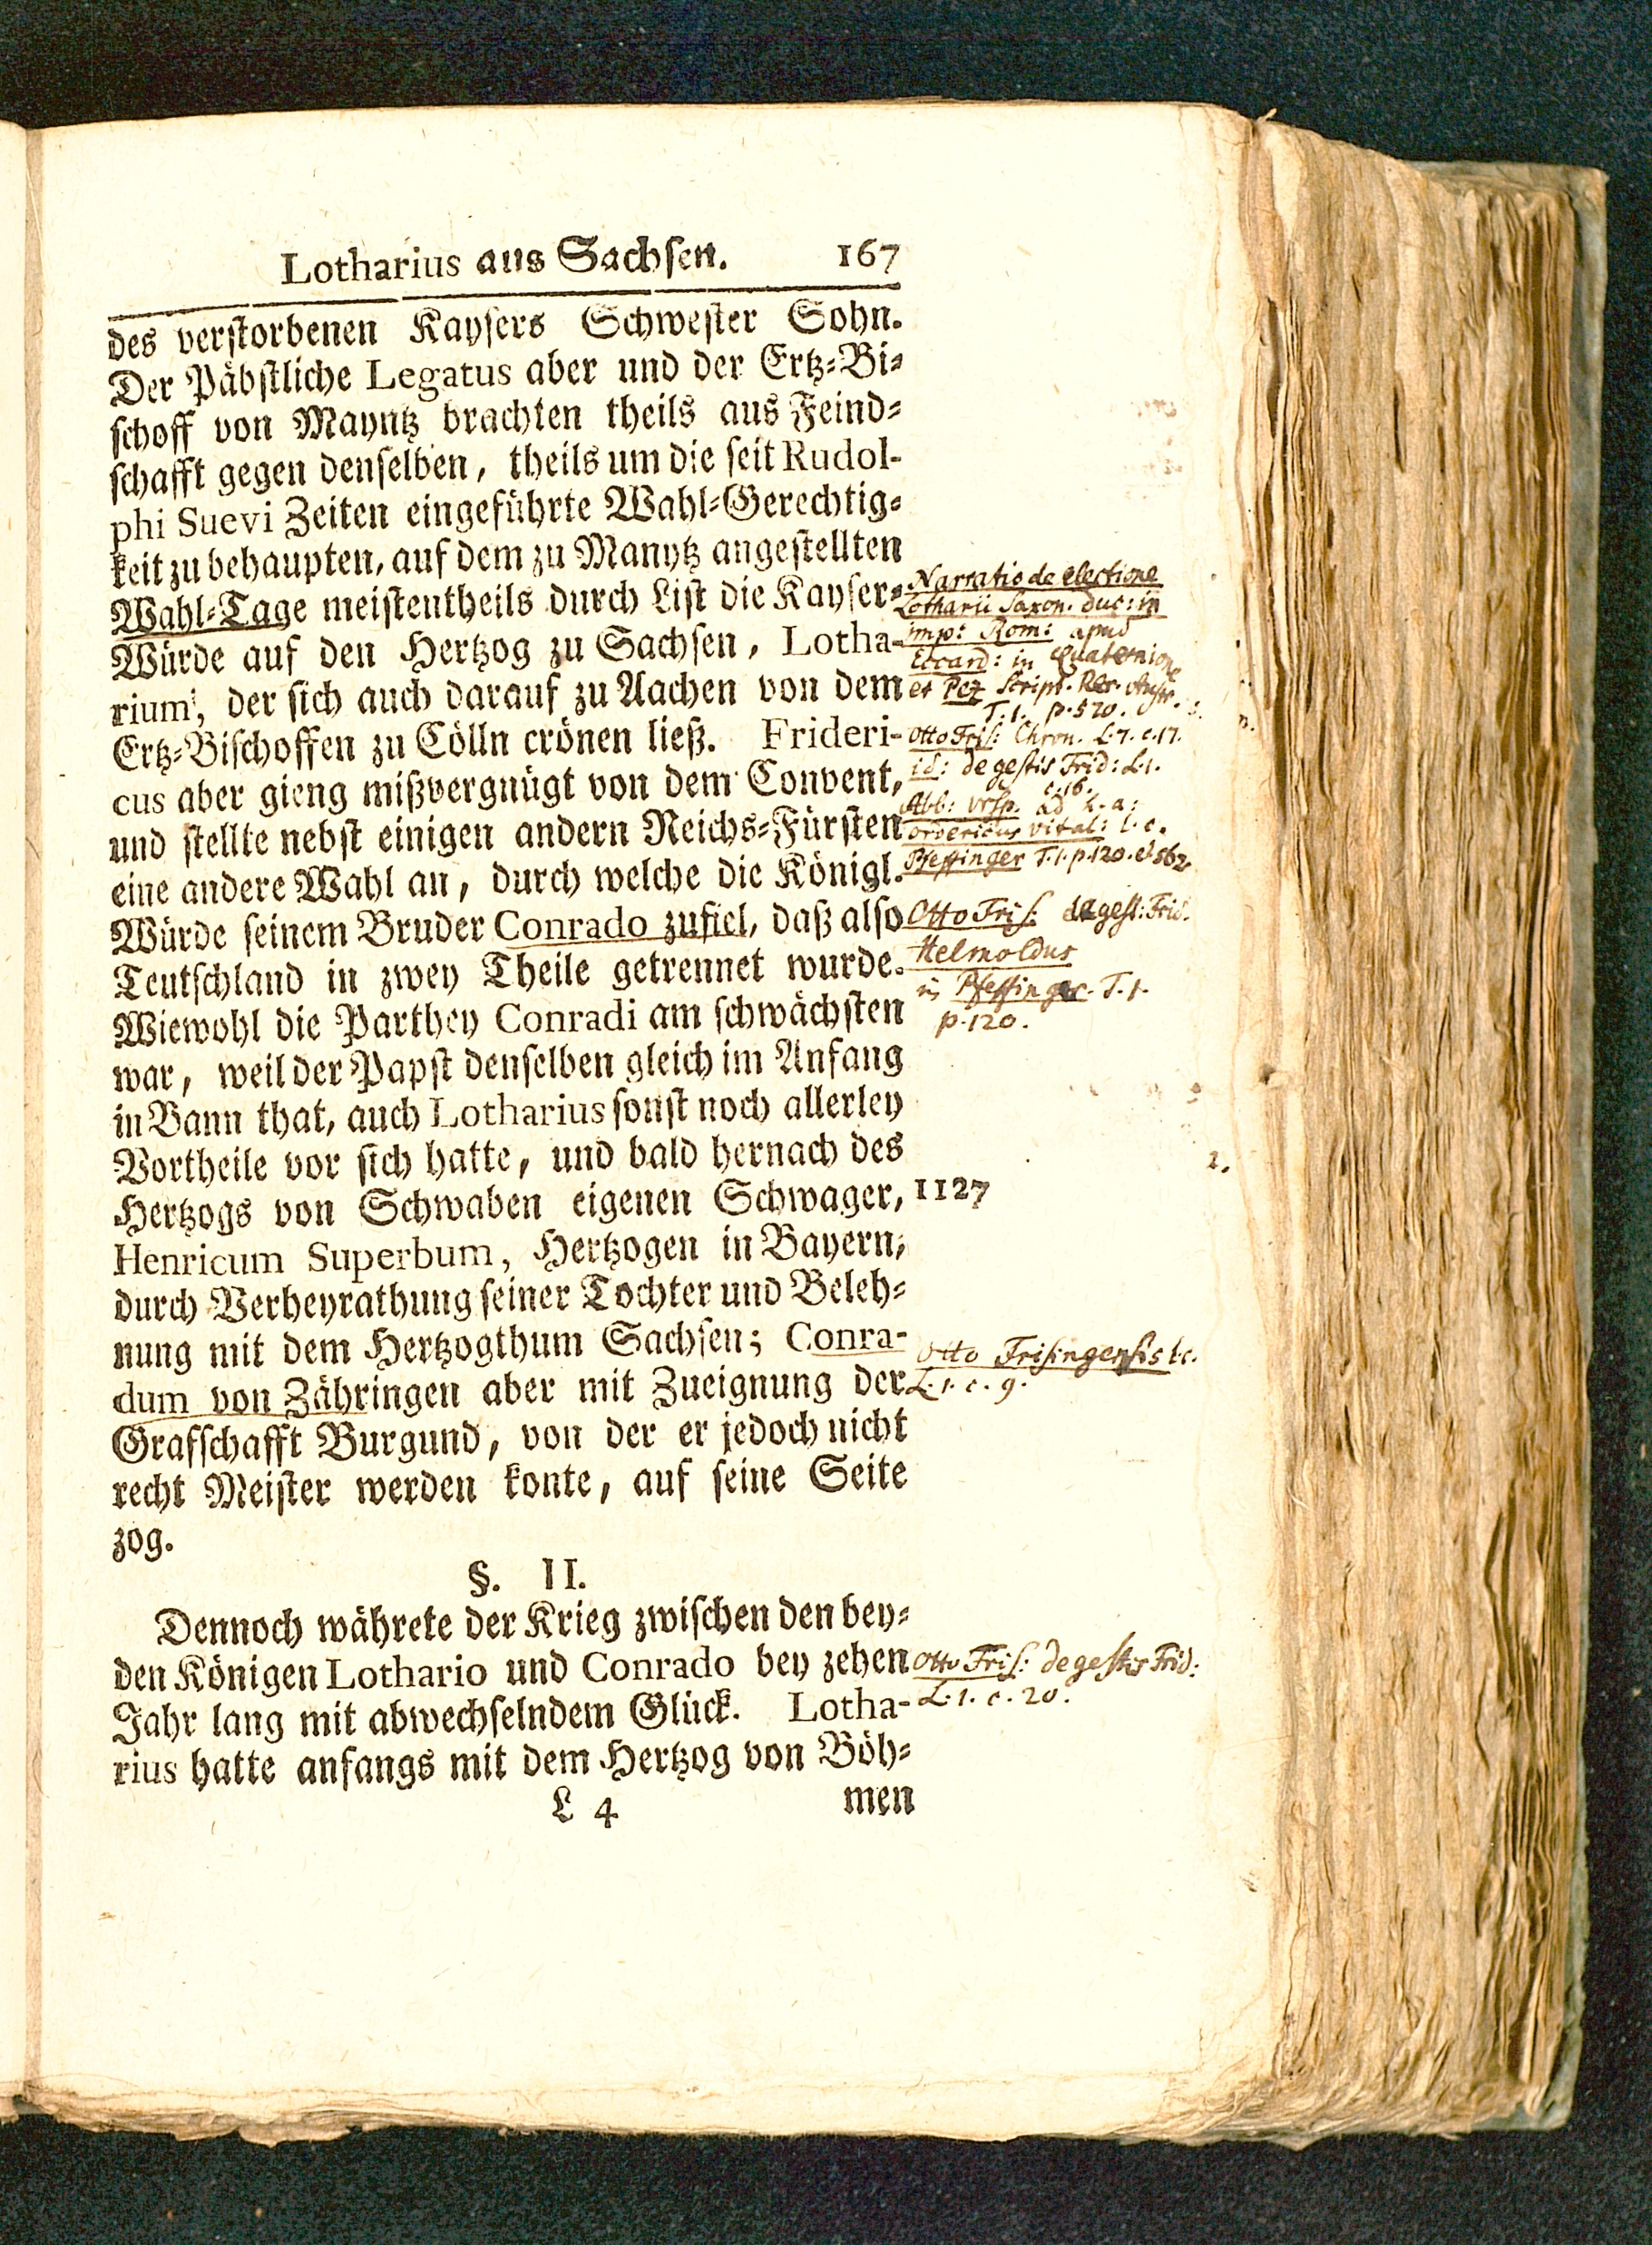 Lotharius aus Sachsen. 167
des verstorbenen Kaysers Schwester Sohn.
Der Päbstliche Legatus aber und der Ertz-Bi-
schoff von Mayntz brachten theils aus Feind-
schafft gegen denselben, theils um die seit Rudol-
phi Suevi Zeiten eingeführte Wahl-Gerechtig-
keit zu behaupten, auf dem zu Manytz angestellten
Wahl-Tage meistentheils durch List die Kayser-
Würde auf den Hertzog zu Sachsen, Lotha-
rium, der sich auch darauf zu Aachen von dem
Ertz-Bischoffen zu Cölln crönen ließ. Frideri-
cus aber gieng mißvergnügt von dem Convent,
und stellte nebst einigen andern Reichs-Fürsten
eine andere Wahl an, durch welche die Königl.
Würde seinem Bruder Conrado zufiel, daß also
Teutschland in zwey Theile getrennet wurde.
Wiewohl die Parthey Conradi am schwächsten
war, weil der Papst denselben gleich im Anfang
in Bann that, auch Lotharius sonst noch allerley
Vortheile vor sich hatte, und bald hernach des
Hertzogs von Schwaben eigenen Schwager,
Henricum Superbum, Hertzogen in Bayern,
durch Verheyrathung seiner Tochter und Beleh-
nung mit dem Hertzogthum Sachsen; Conra-
dum von Zähringen aber mit Zueignung der
Grafschafft Burgund, von der er jedoch nicht
recht Meister werden konte, auf seine Seite
zog.
§. II.
Dennoch währete der Krieg zwischen den bey-
den Königen Lothario und Conrado bey zehen
Jahr lang mit abwechselndem Glück. Lotha-
rius hatte anfangs mit dem Hertzog von Böh-
L 4 men
Narratio de electione
Lotharii Saxon. duc: in
imp: Rom: apud
Eccard: in Quaternione
et Pez Script. Rer. Austr.
T. 1. p. 570.
Otto Fris: Chron. L. 7. c. 17.
id: de gestis Frid: L. 1.
c. 16.
Abb: Ursp. ad h. a:
ordericus vital: l. c.
Pfeffinger T. 1. p. 120. et 562.
Otto Fris: de gest: Frid.
Helmoldus
in Pfeffinger. T. 1.
p. 120.
1127
Otto Frisingensis l. c.
L. 1. c. 9.
Otto Fris: de gestis Frid:
L. 1. c. 20.